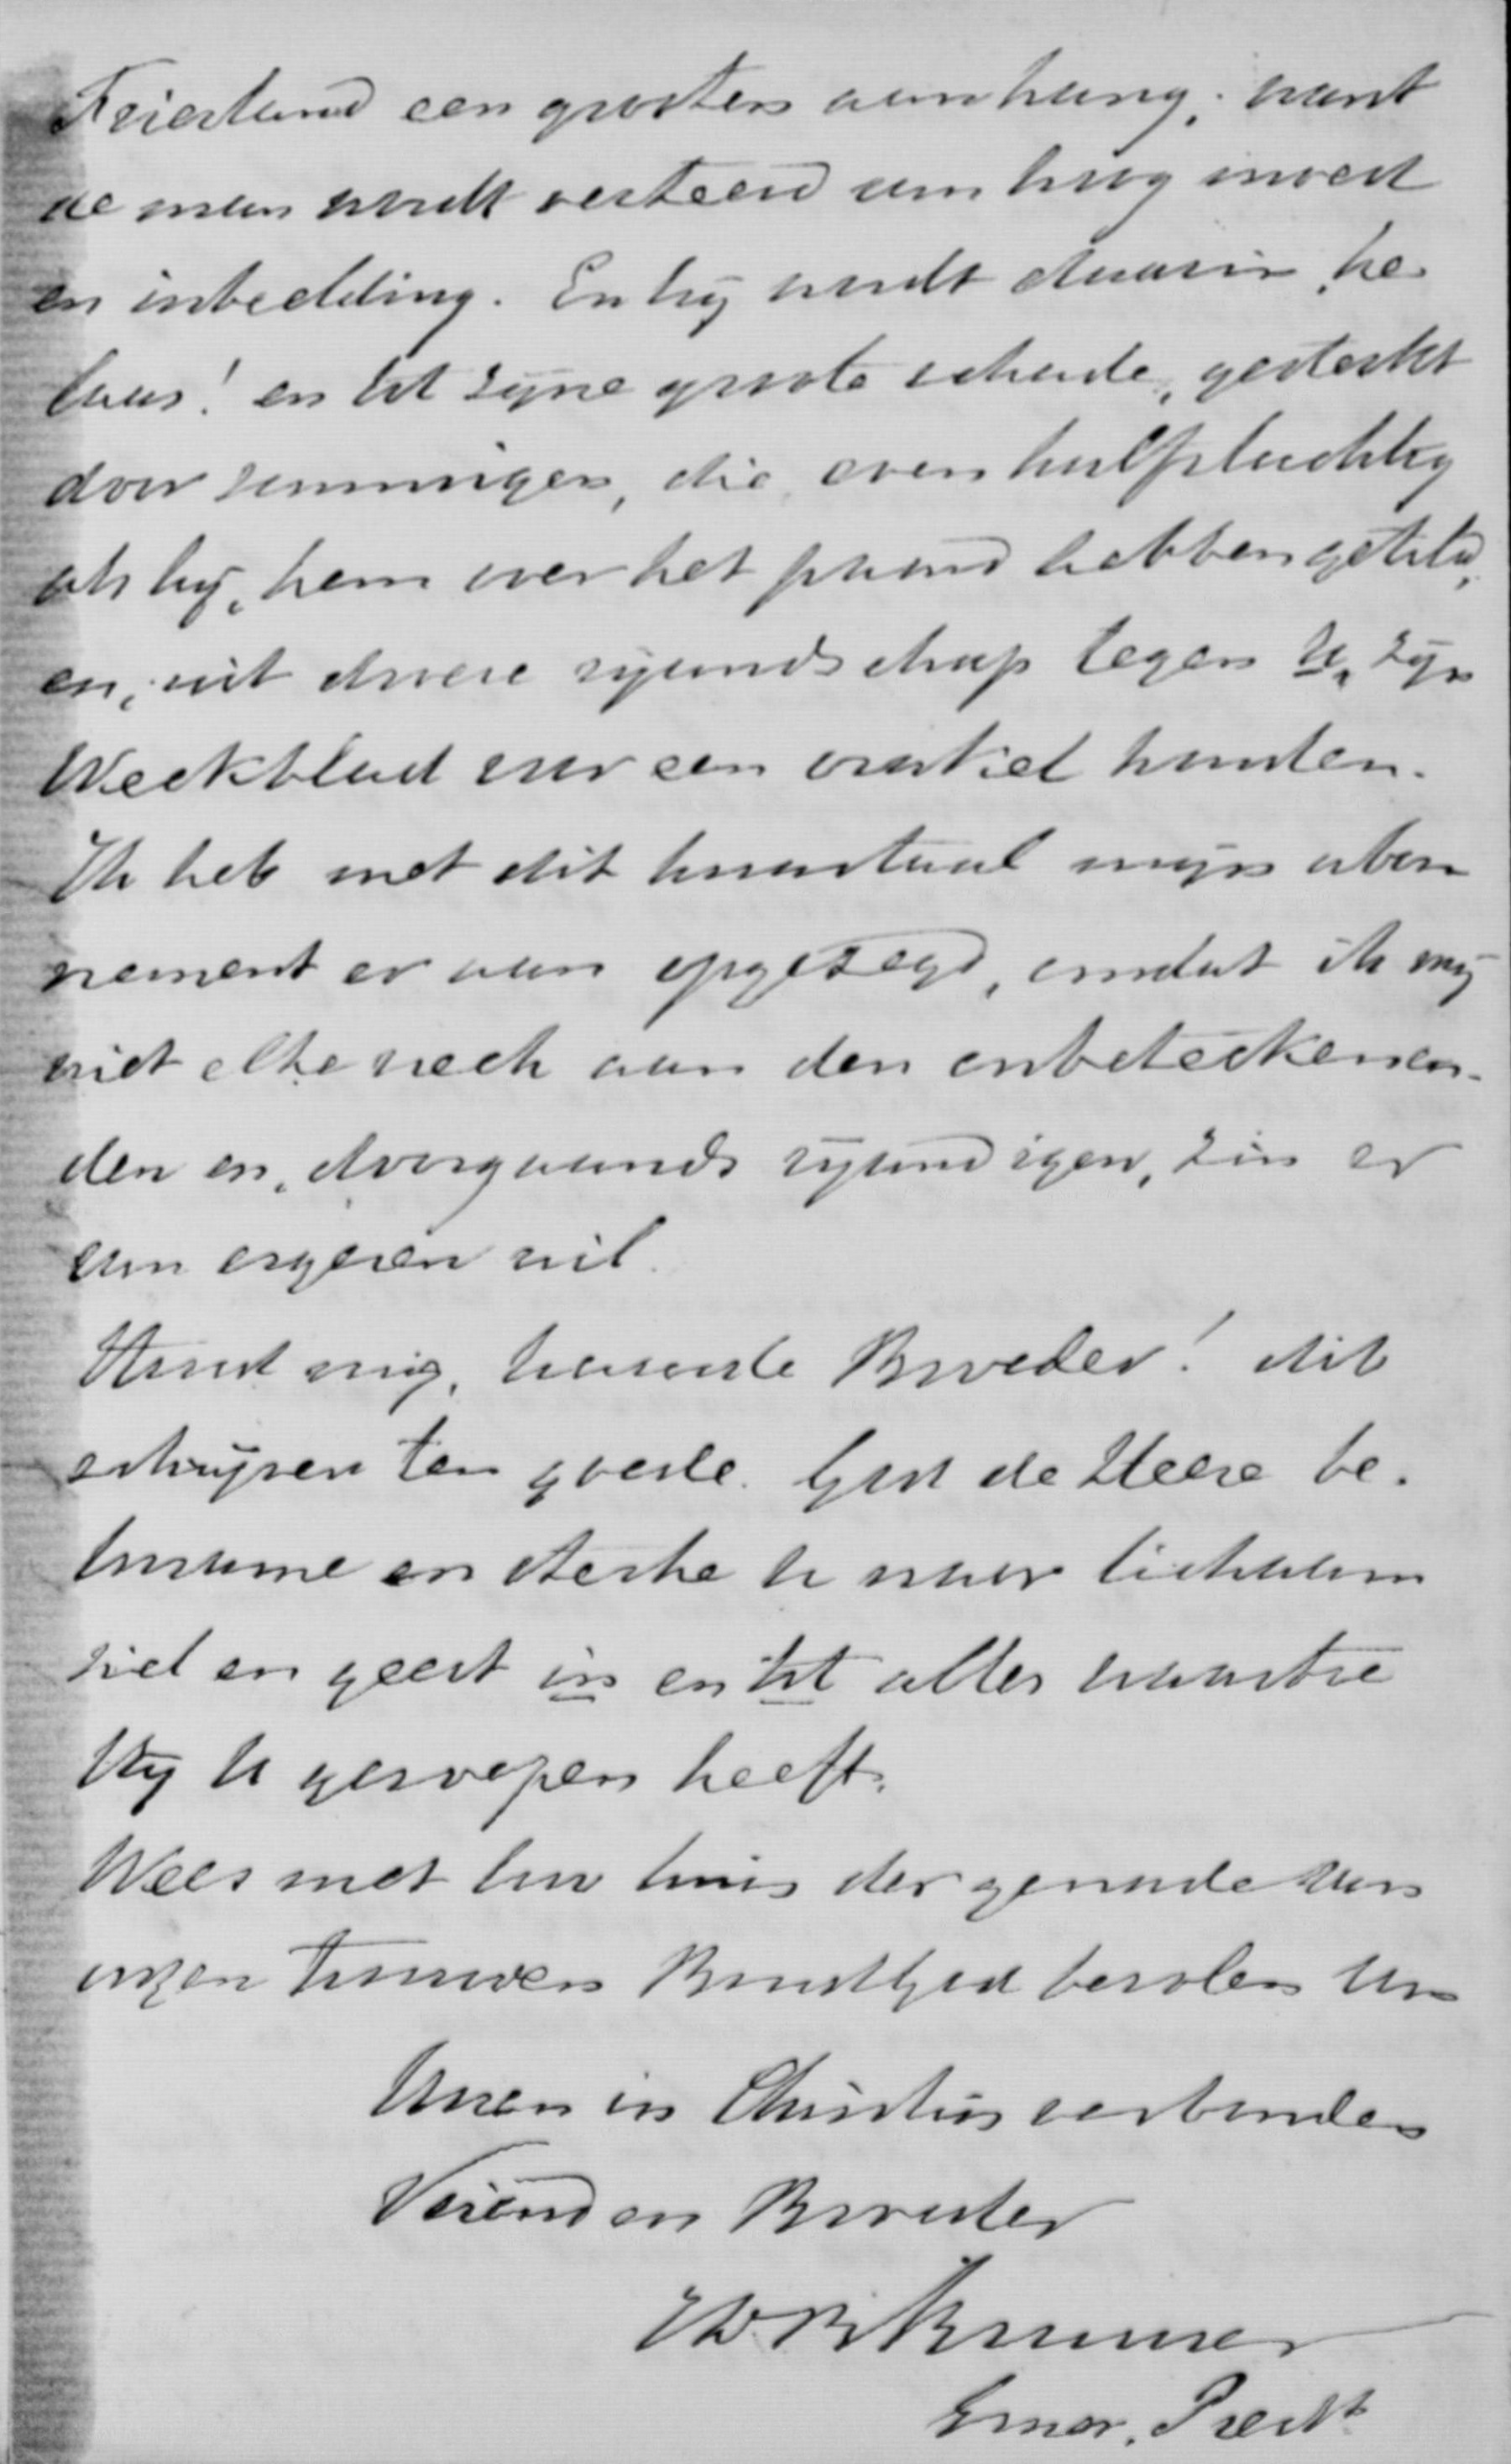 Friesland een grooten aanhang; want
de man wordt verteerd van hoogmoed
en inbeelding. En hij wordt daarin, he-
laas! en tot zijne groote schade, gesterkt
door sommigen, die, even halfslachtig
als hij, hem over het paard hebben getild,
en, uit dwere vijandschap tegen U, zijn
Weekblad voor een orakel houden.
Ik heb met dit kwartaal mijn abon
nement er aan opgezegd, omdat ik mij
niet elke week aan den onbeteekenen-
den en, doorgaands vijandigen, zin er
van ergeren wil.
Houd mij, waarde Broeder! dit
schrijven ten goede. God de Heere be-
kwame en sterke U naar lichaam
ziel en geest in en tot alles waartoe
Hij U geroepen heeft.
Wees met Uw huis der genade van
onzen trouwen Bondsgod bevolen van
Uwen in Christus verbonden
Vriend en Broeder
Brummer
Emer. Predt